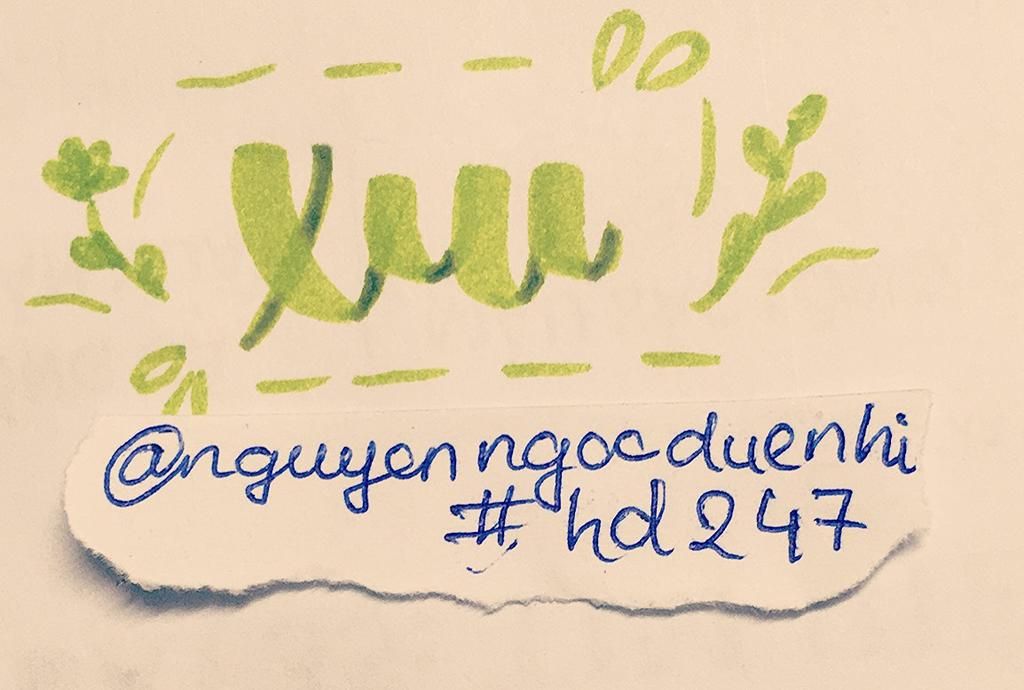 Xuu
@nguyenngocduenhi
#hd247